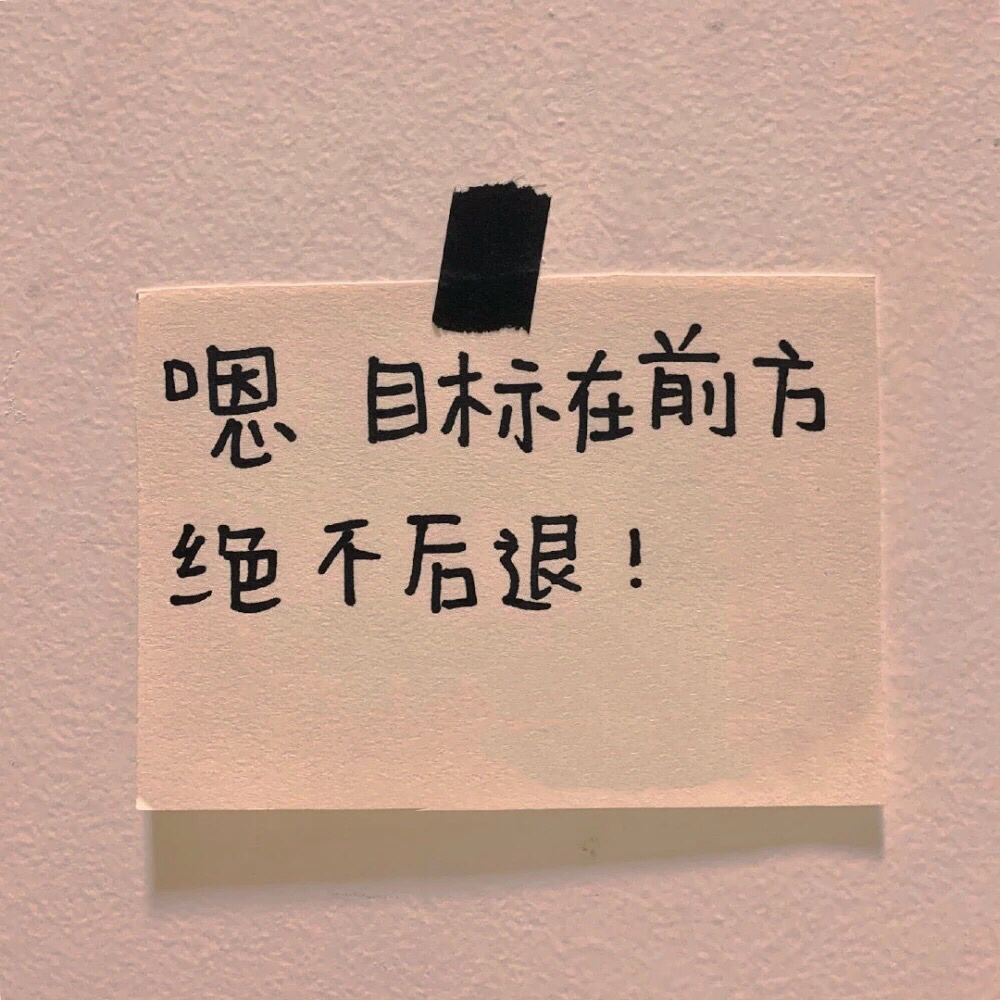 嗯 目标在前方
绝不后退！